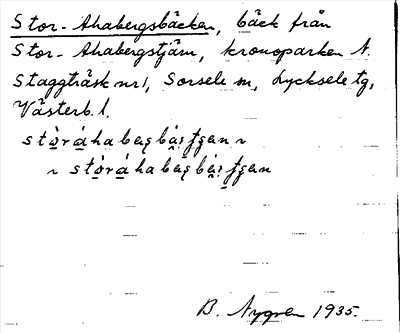 Stor-Ahabergsbäcken, bäck från
Stor-Ahabergstjärn, kronoparken N.
Staggträsk nr 1, Sorsele sn, Lycksele tg,
Västerb. l.
B. Nygren 1935.